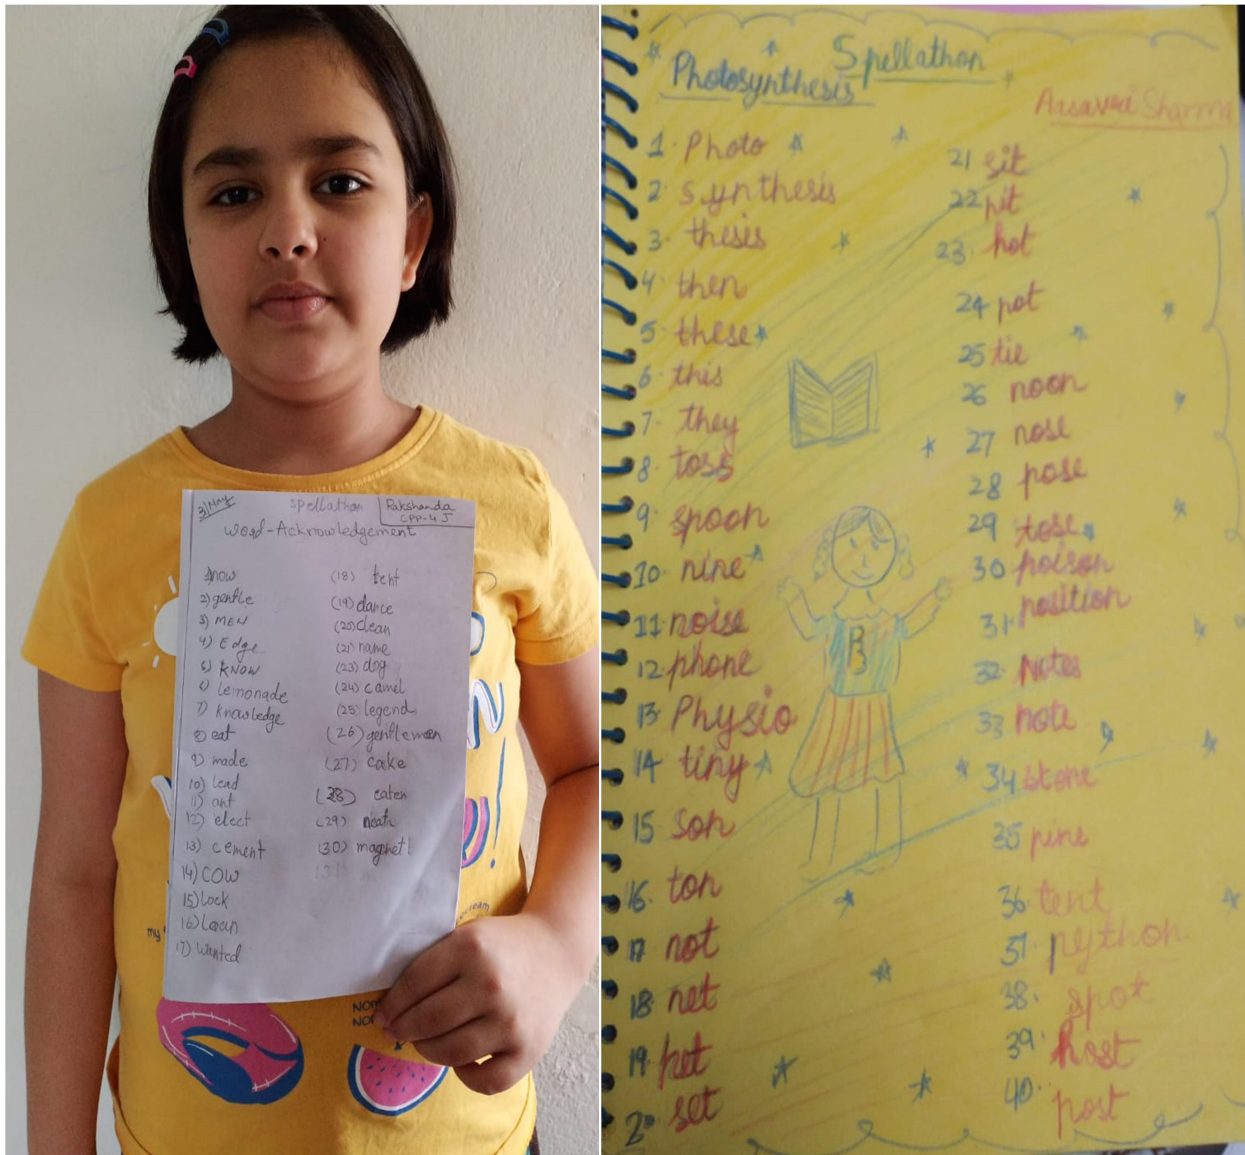 31/May
Spellathon
Rakshanda
CPP-4J
Word-Acknowledgement
1)now
2)gentle
3) MEN
4) Edge
5) KNOW
6) Lemonade
7) Knowledge
8) eat
9) made
10) lead
11) ant
12) elect
13) cement
14) COW
15) Lock
16) Loan
17) Wanted
(18) tent
(19) dance
(20) clean
(21) name
(23) dog
(24) camel
(25) legend
(26) gentlemen
(27) cake
(28) eaten
(29) neat
(30) magnet
my
cream
NOM
NOM
Spellathon
Photosynthesis
Aasaveri Sharma
1. Photo
2. synthesis
3. thesis
4. then
5. these
6. this
7. they
8. toss
9. spoon
10. nine
11. noise
12. phone
13. Physio
14. tiny
15. son
16. ton
17. not
18. net
19. pet
20. set
21 sit
22 pit
23. hot
24 pot
25 tie
26 noon
27 nose
28 pose
29 tose
30 poison
31. position
32. Notes
33 note
34 stone
35 pine
36. tent
37. python
38. spot
39. host
40. post
B